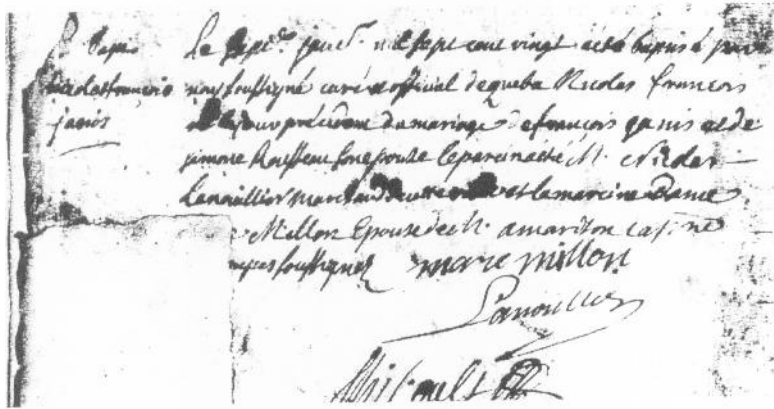 Bap.
Nicolas francois
janis
Le sept.e janv. mil sept cent vingt a esté baptisé par
nous soussigné curé et official de quebec Nicolas francois
né le jour précédent du mariage de francois janis et de
simone Rousseau son epouse le parein a été M. Nicolas
Lanoüillier marchand et la mareine Dame
Millon Epouse de M. amariton
soussignez
marc millon
Lanoullier
Thiboult